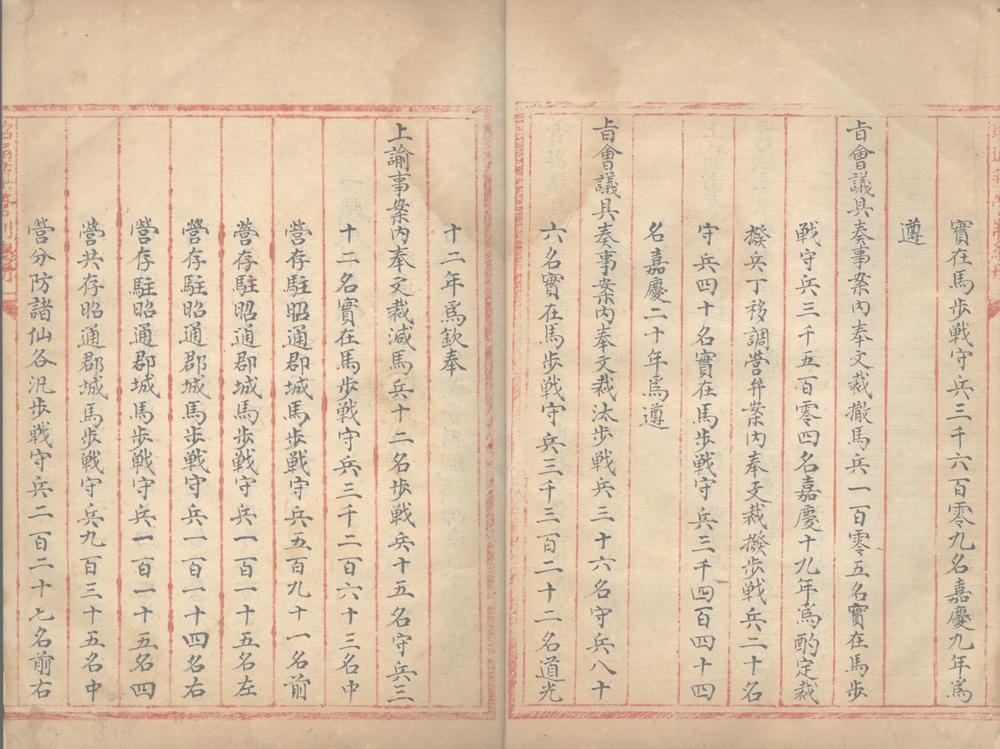 實在馬步戰守兵三千六百零九名嘉慶九年爲
遵
旨會議具奏事案內奉文裁撤馬兵一百零五名實在馬步
戰守兵三千五百零四名嘉慶十九年爲酌定裁
撥兵丁移調營弁案內奉文裁撥步戰兵二十名
守兵四十名實在馬步戰守兵三千四百四十四
名嘉慶二十年爲遵
旨會議具奏事案內奉文裁汰步戰兵三十六名守兵八十
六名實在馬步戰守兵三千三百二十二名道光
十二年爲欽奉
上諭事案內奉文裁減馬兵十二名步戰兵十五名守兵三
十二名實在馬步戰守兵三千二百六十三名中
營存駐昭通郡城馬步戰守兵五百九十一名前
營存駐昭通郡城馬步戰守兵一百一十五名左
營存駐昭通郡城馬步戰守兵一百一十四名右
營存駐昭通郡城馬步戰守兵一百一十五名四
營共存昭通郡城馬步戰守兵九百三十五名中
營分防諸仙各汛步戰守兵二百二十七名前右